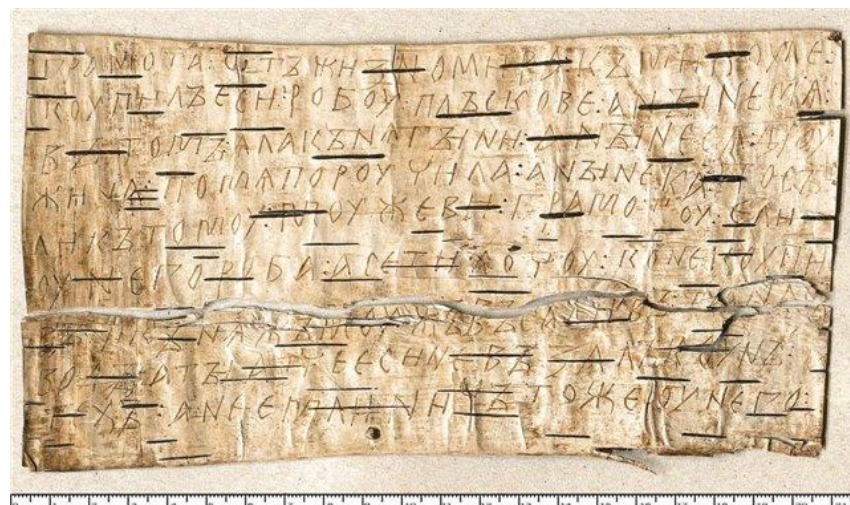 грамота : ѡтъ жизномира : къ микоуле :
коупилъ еси : робоу : плъскове : а ныне мѧ :
въ томъ : ѧла кънѧгыни : а ныне сѧ дроу
жина : по мѧ пороучила : а ныне ка : посъ
ли къ томоу : моужеви : грамотоу : ели
оу него роба : а се ти хочоу : коне коупи
въ : и кънѧжъ моужъ въсадивъ : та на съ
воды : а ты атче еси не възалъ коунъ :
техъ : а не емли : ничъто же оу него :